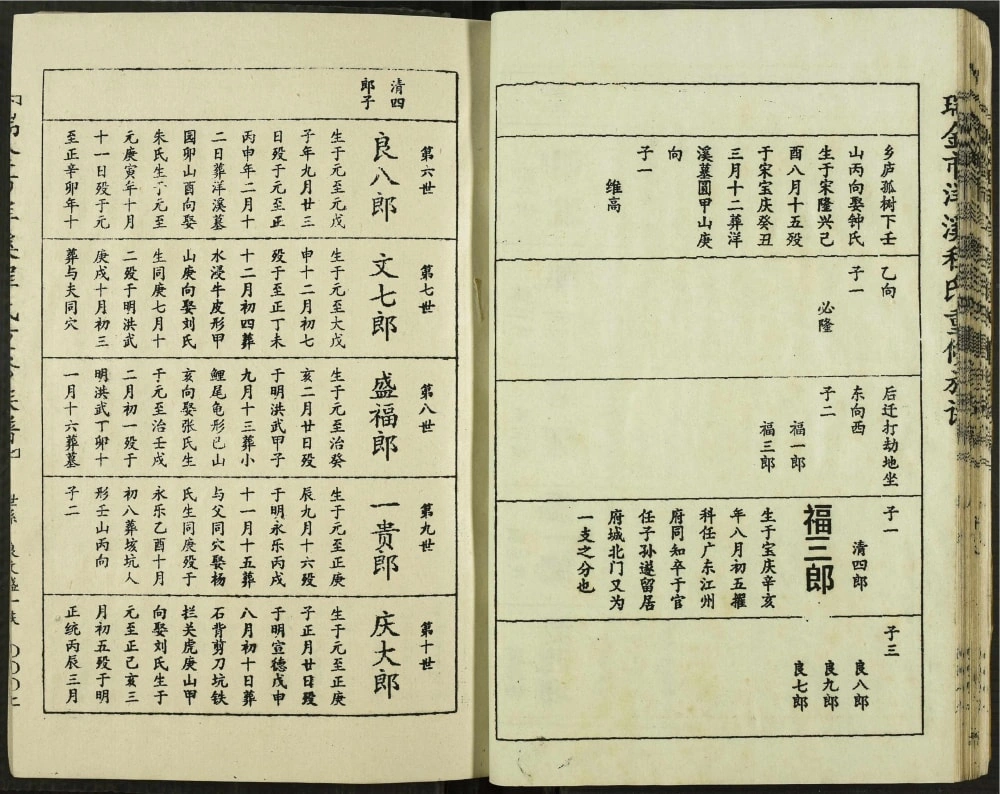 瑞金市洋溪程氏重修族谱
乡庐孤树下壬
山丙向娶钟氏
生于宋隆兴己
酉八月十五殁
于宋宝庆癸丑
三月十二葬洋
溪墓圆甲山庚
向
子一
维高
乙向
子一
必隆
后迁打劫地坐
东向西
子二
福一郎
福三郎
子一
清四郎
福三郎
生于宝庆辛亥
年八月初五擢
科任广东江州
府同知卒于官
任子孙遂留居
府城北门又为
一支之分也
子三
良八郎
良九郎
良七郎
清四
郎子
第六世
良八郎
生于元至元戊
子年九月廿三
日殁于元至正
丙申年二月十
二日葬洋溪墓
园卯山酉向娶
朱氏生于元至
元庚寅年十月
十一日殁于元
至正辛卯年十
第七世
文七郎
生于元至大戊
申十二月初七
殁于至正丁未
十二月初四葬
水浸牛皮形甲
山庚向娶刘氏
生同庚七月十
二殁于明洪武
庚戌十月初三
葬与夫同穴
第八世
盛福郎
生于元至治癸
亥二月廿日殁
于明洪武甲子
九月十三葬小
鲤尾龟形巳山
亥向娶张氏生
于元至治壬戌
二月初一殁于
明洪武丁卯十
一月十六葬墓
第九世
一贵郎
生于元至正庚
辰九月十六殁
于明永乐丙戌
十一月十五葬
与父同穴娶杨
氏生同庚殁于
永乐乙酉十月
初八葬垓坑人
形壬山丙向
子二
第十世
庆大郎
生于元至正庚
子正月廿日殁
于明宣德戊申
八月初十日葬
石背剪刀坑铁
拦关虎庚山甲
向娶刘氏生于
元至正己亥三
月初五殁于明
正统丙辰三月